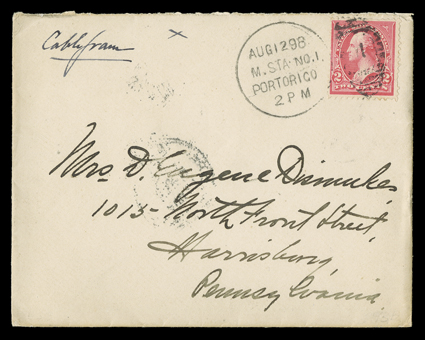 Cablegram
AUG 12 98
M. STA. NO. 1.
PORTORICO
2 P M
2 2
TWO CENTS
Mrs D. Eugene Dismukes
1015 North Front Street,
Harrisburg,
Pennsylvania.